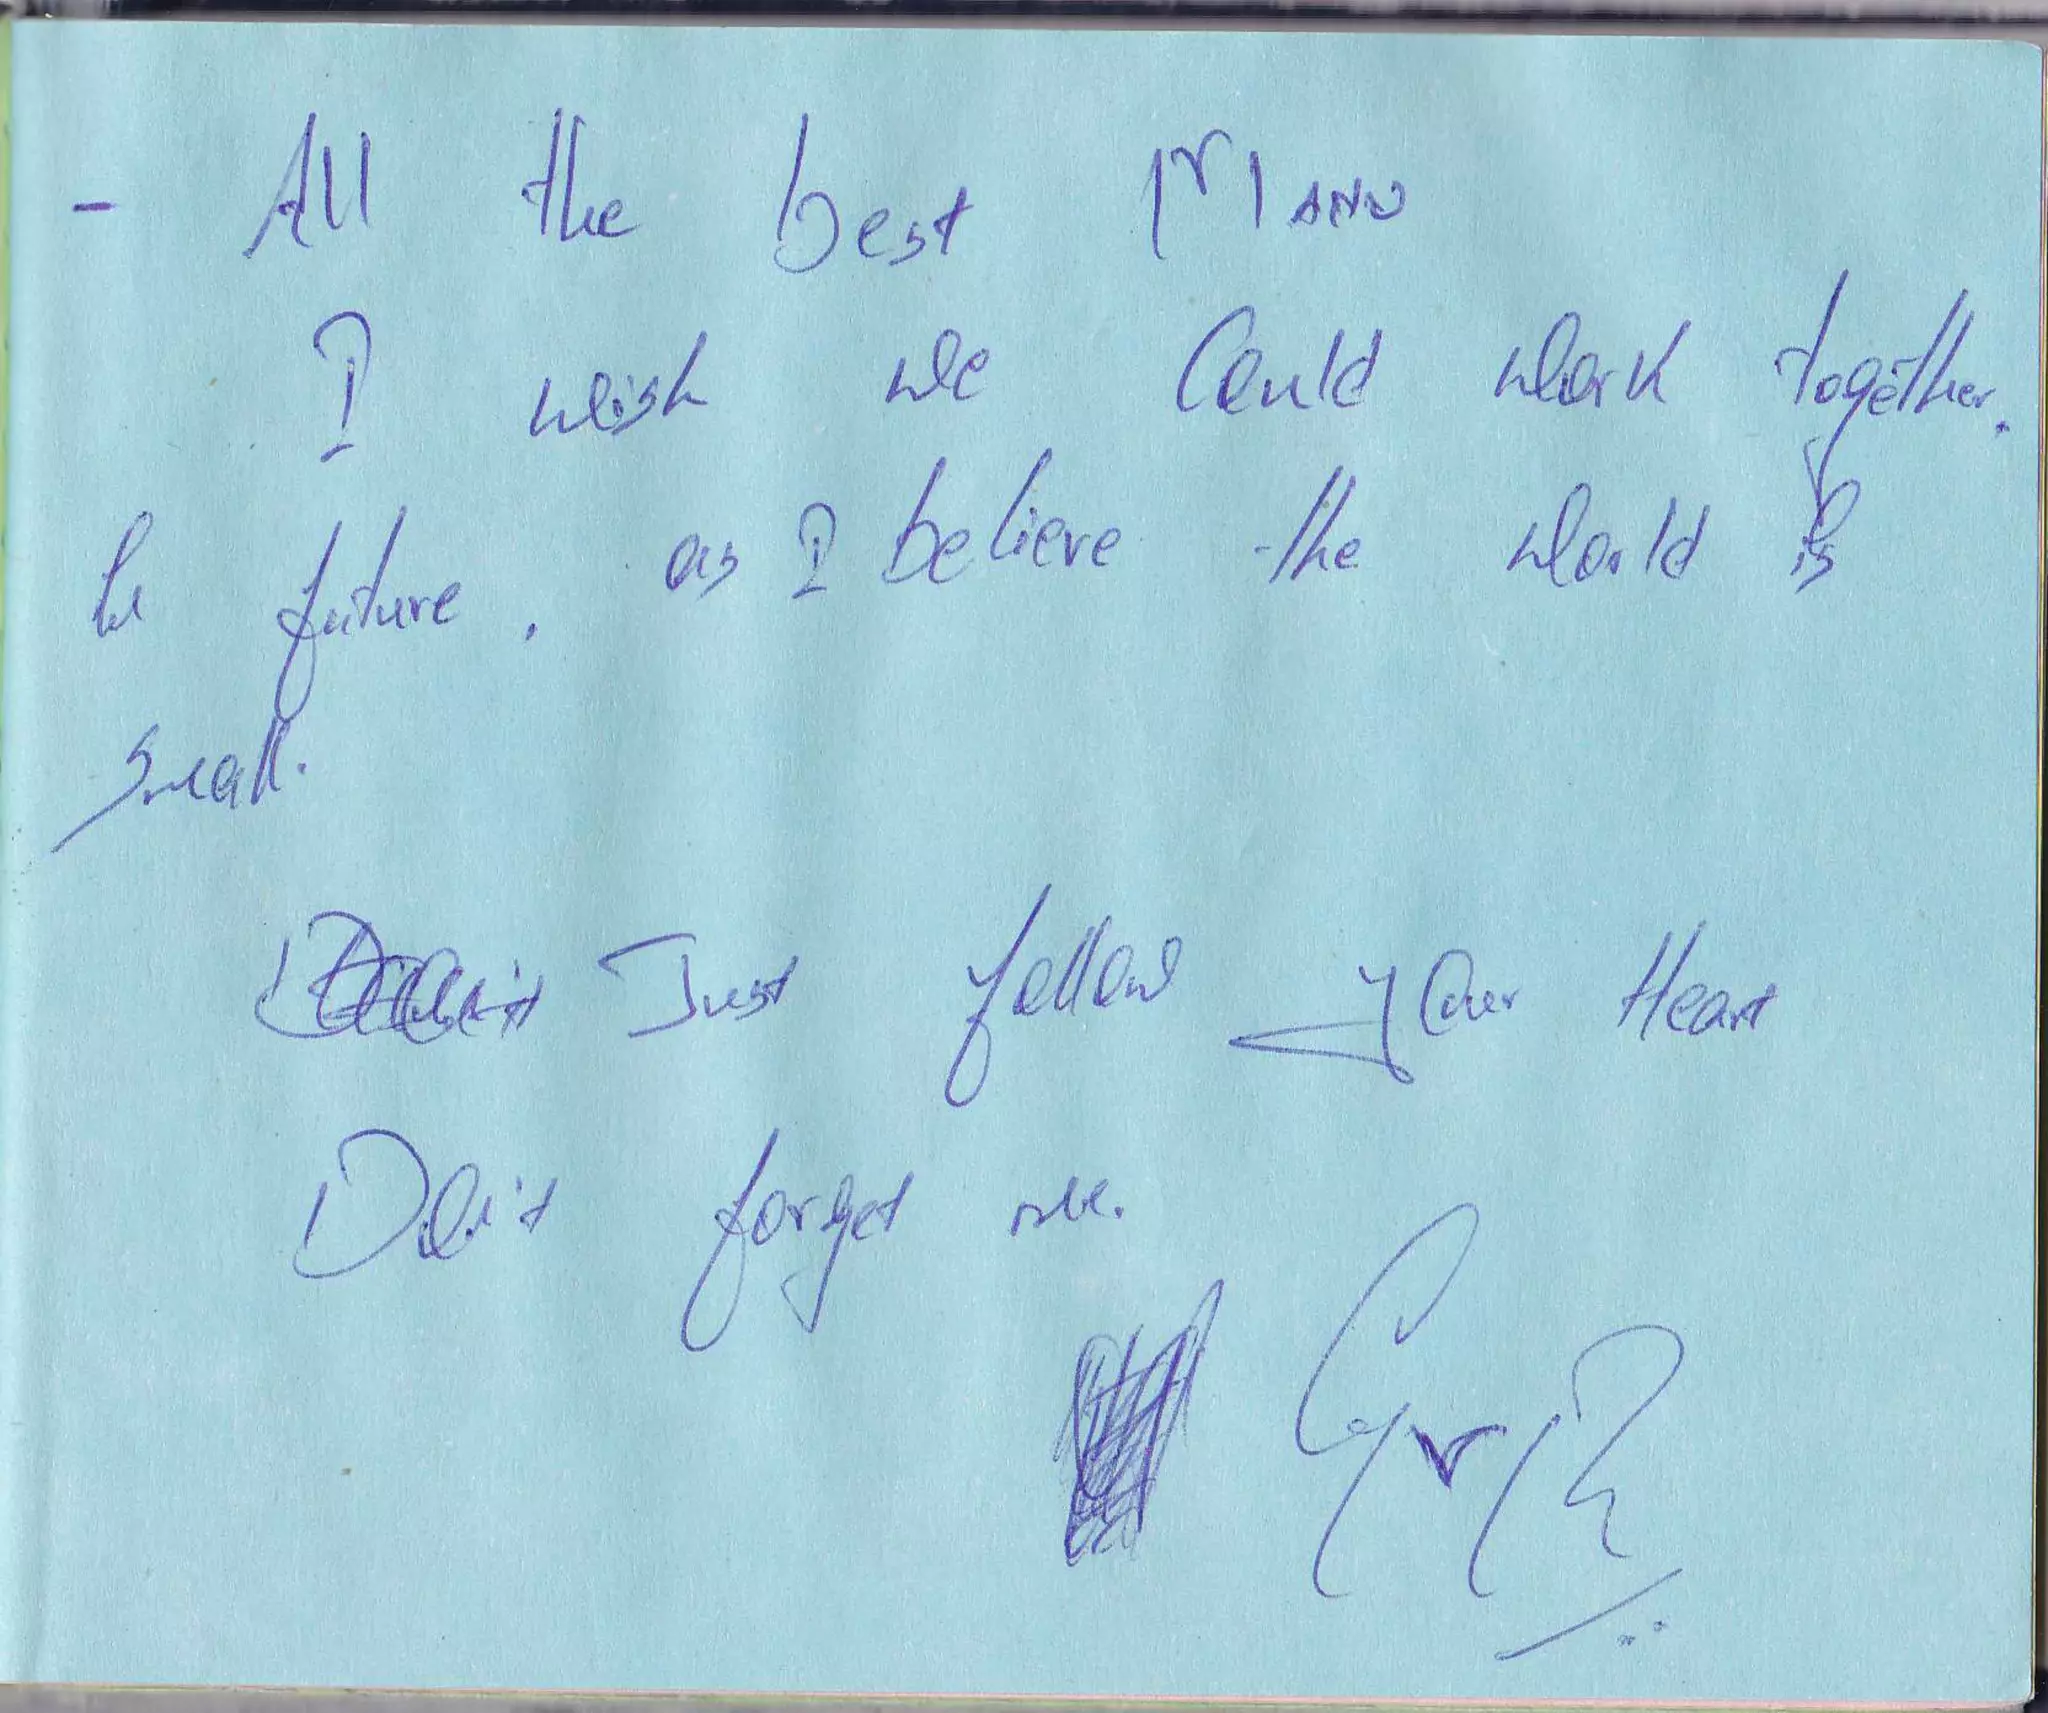 - All the best Manu
I wish we could work together.
In future. as I believe the world is
small.
Just follow your Heart
Don't forget me.